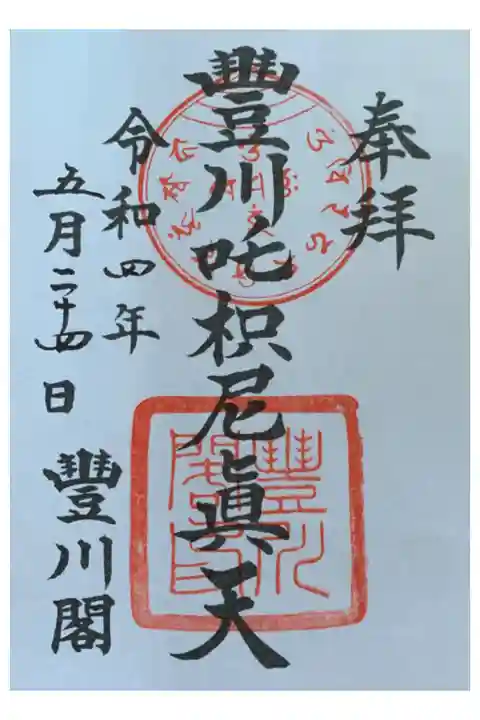 奉拝
豐川吒枳尼眞天
令和四年
五月二十四日
豐川閣
豐川閣印